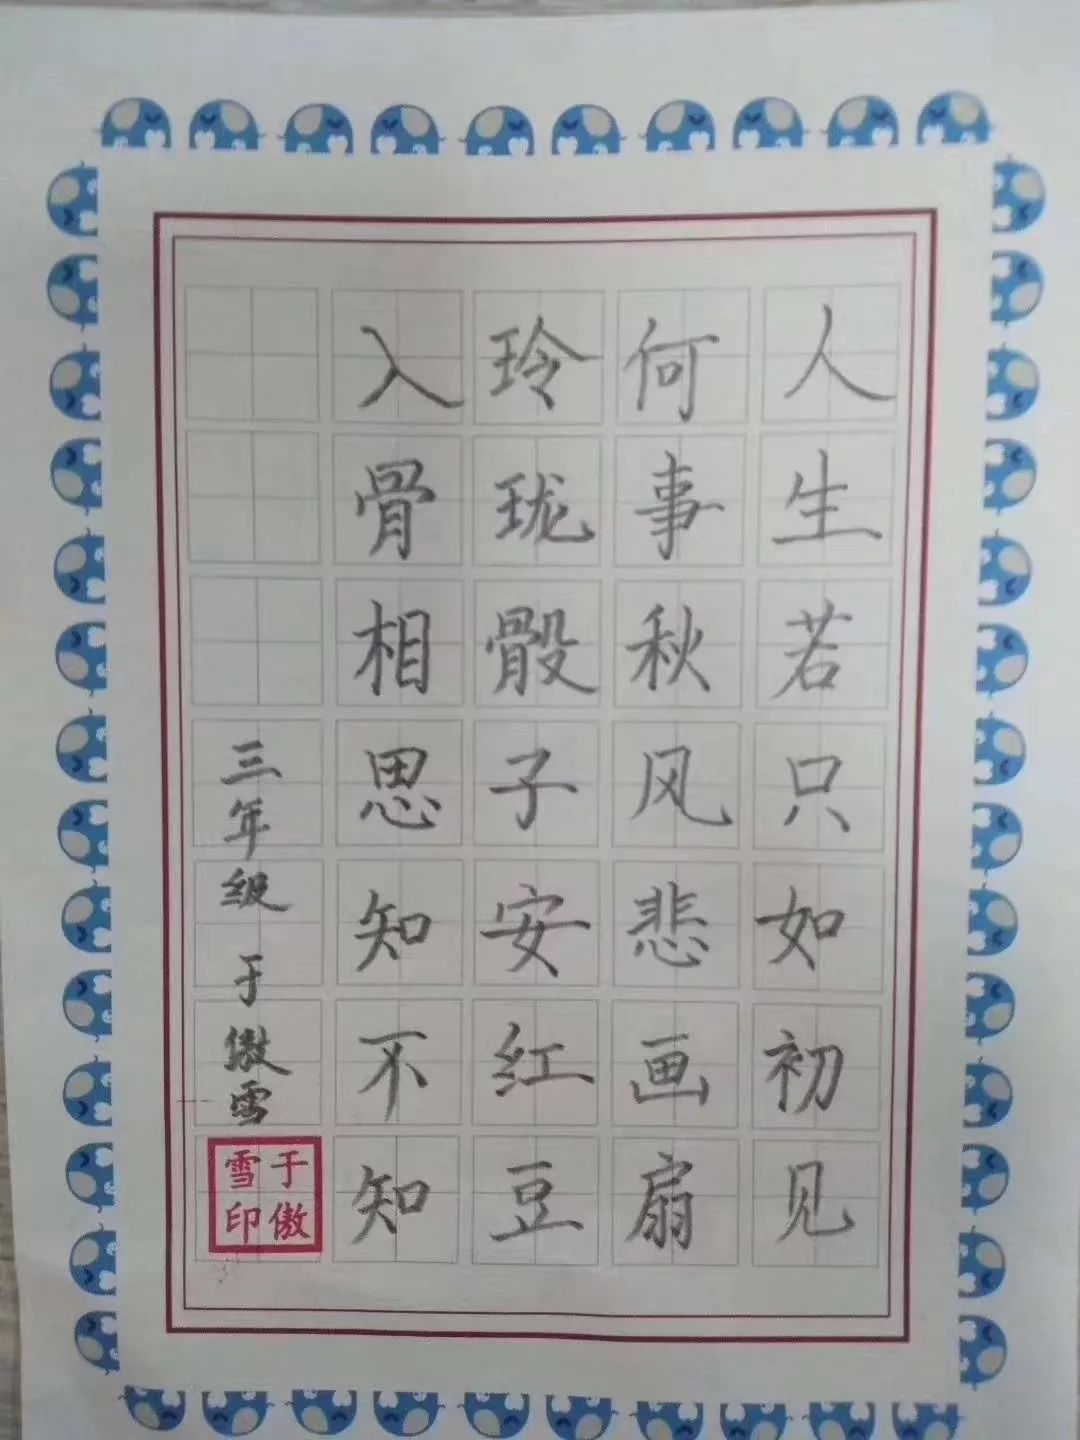 人生若只如初见
何事秋风悲画扇
玲珑骰子安红豆
入骨相思知不知
三年级 于傲雪
于傲
雪印